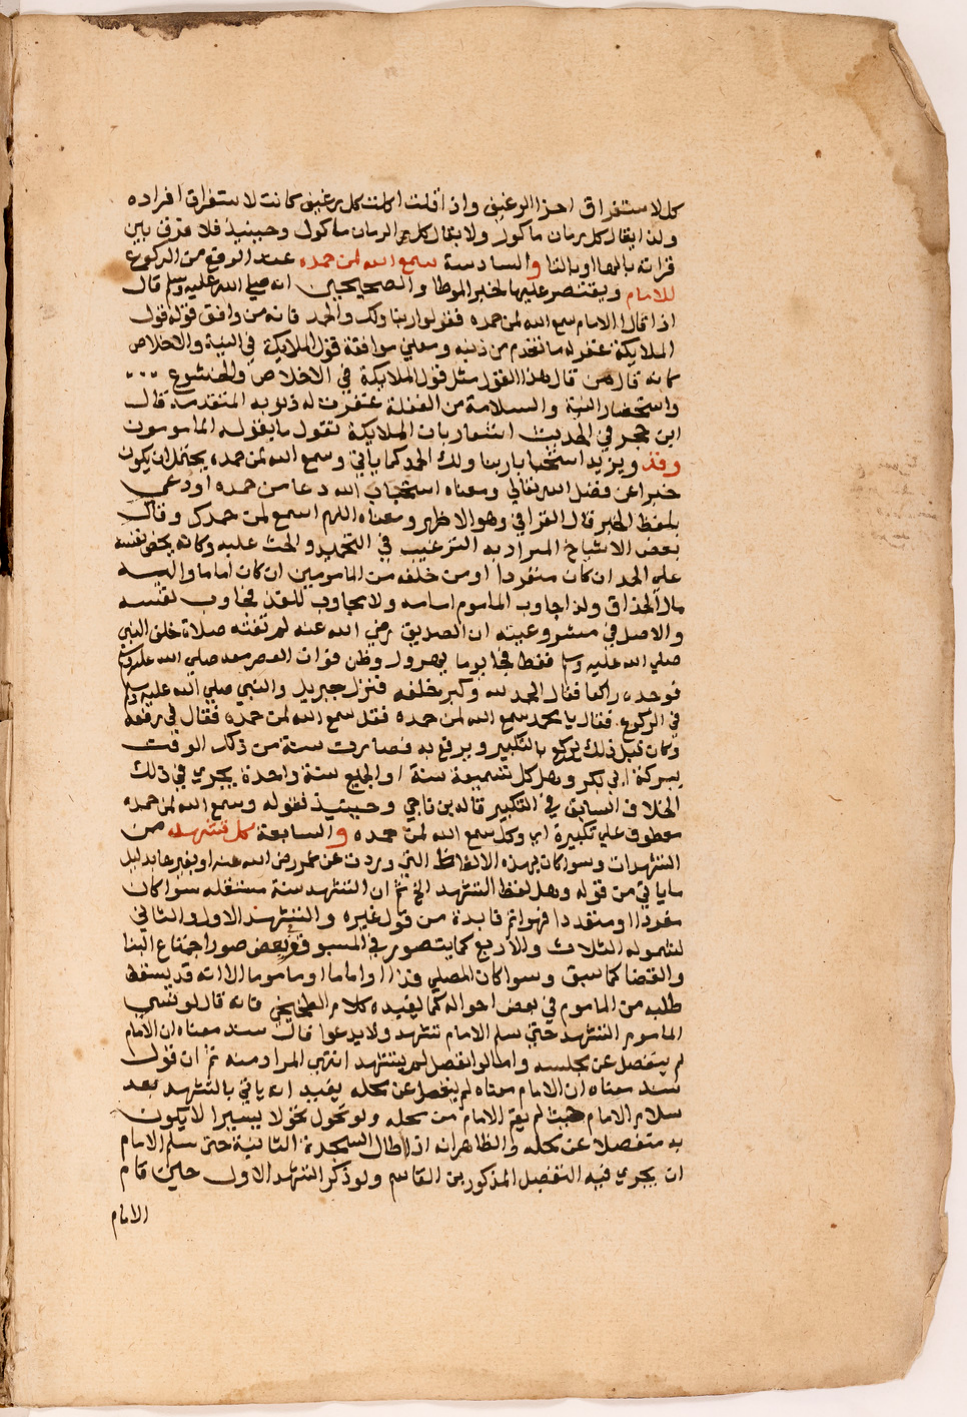 كل لاستغراق اجزا الرغيف واذا قلت اكلت كل رغيف كانت لاستغراق افراده
ولذا يقال كل رمان ماكول ولا يقال كل الرمان ماكول وحينيذ فلا فرق بين
قراته بالها او بالتا والسادسة سمع الله لمن حمده عند الرفع من الركوع
للامام ويقتصر عليها لخبر الموطا والصحيحين انه صلي الله عليه وسلم قال
اذا قال الامام سمع الله لمن حمده فقولوا ربنا ولك الحمد فانه من وافق قوله قول
الملايكة غفر له ما تقدم من ذنبه ومعني موافقة قول الملايكة في النية والاخلاص
كانه قال من قال هذا القول مثل قول الملايكة في الاخلاص والخشوع ...
واستحضار النية والسلامة من الغفلة غفرت له ذنوبه المتقدمة قال
ابن حجر في الحديث اشعار بان الملايكة تقول ما يقوله الماموموت
وفذ ويزيد استحبابا ربنا ولك الحمد كما ياتي وسمع الله لمن حمده يحتمل ان يكون
خبرا عن فضل الله تعالي ومعناه استجاب الله دعا من حمده او دعي
بلفظ الخبر قال القرافي وهو الاظهر ومعناه اللهم اسمع لمن حمدك وقال
بعض الاشياخ المراد به الترغيب في التحميد والحث عليه وكانه يحض نفسه
علي الحمد ان كان منفردا او من خلفه من المامومين ان كان اماما واليه
مال الحذاق ولذا جاوب الماموم امامه ولا مجاوب للفذ فجاوب نفسه
والاصل في مشروعيته ان الصديق رضي الله عنه لم تفته صلاة خلف النبي
صلي الله عليه وسلم فقط فجا يوما يهرول وظن فوات العصر معه صلي الله عليه وسلم
فوجده راكعا فقال الحمد لله وكبر خلفه فنزل جبريل والنبي صلي الله عليه وسلم
في الركوع فقال يا محمد سمع الله لمن حمده فقل سمع الله لمن حمده فقال في رفعه
وكان قبل ذلك يركع بالتكبير ويرفع به فصارت سنة من ذلك الوقت
ببركة ابي بكر وهل كل تسميعة سنة او الجميع سنة واحدة يجري في ذلك
الخلاف السابق في التكبير قاله بن ناجي وحينيذ فقوله وسمع الله لمن حمده
معطوف علي تكبيرة اي وكل سمع الله لمن حمده والسابعة كل تشهد من
التشهدات وسوا كان بهذه الالفاظ التي وردت عن عمر رضي الله عنه او بغيرها بدليل
ما ياتي من قوله وهل لفظ التشهد الخ ثم ان التشهد سنة مستقلة سوا كان
مفردا او متعددا فهو اتم فايدة من قول غيره والتشهد الاول والثاني
لشموله الثلاث والاربع كما يتصور في المسبوق وبعض صور اجتماع البنا
والقضا كما سبق وسوا كان المصلي فذا او اماما او ماموما الا انه قد يسقط
طلبه من الماموم في بعض احواله كما يفيده كلام الطخيخي فانه قال لو نسي
الماموم التشهد حتي سلم الامام تشهد ولا يدعوا قال سند معناه ان الامام
لم ينفصل عن مجلسه واما لو انفصل لم يتشهد انتهي المراد منه ثم ان قول
سند معناه ان الامام معناه لم ينفصل عن محله يفيد انه ياتي بالتشهد بعد
سلام الامام حيث لم يقم الامام من محله ولو تحول تحولا يسيرا لا يكون
به منفصلا عن محله والظاهر انه اذا اطال السجدة الثانية حتي سلم الامام
ان يجري فيه التفصيل المذكور بن القاسم ولو ذكر التشهد الاول حين قام
الامام